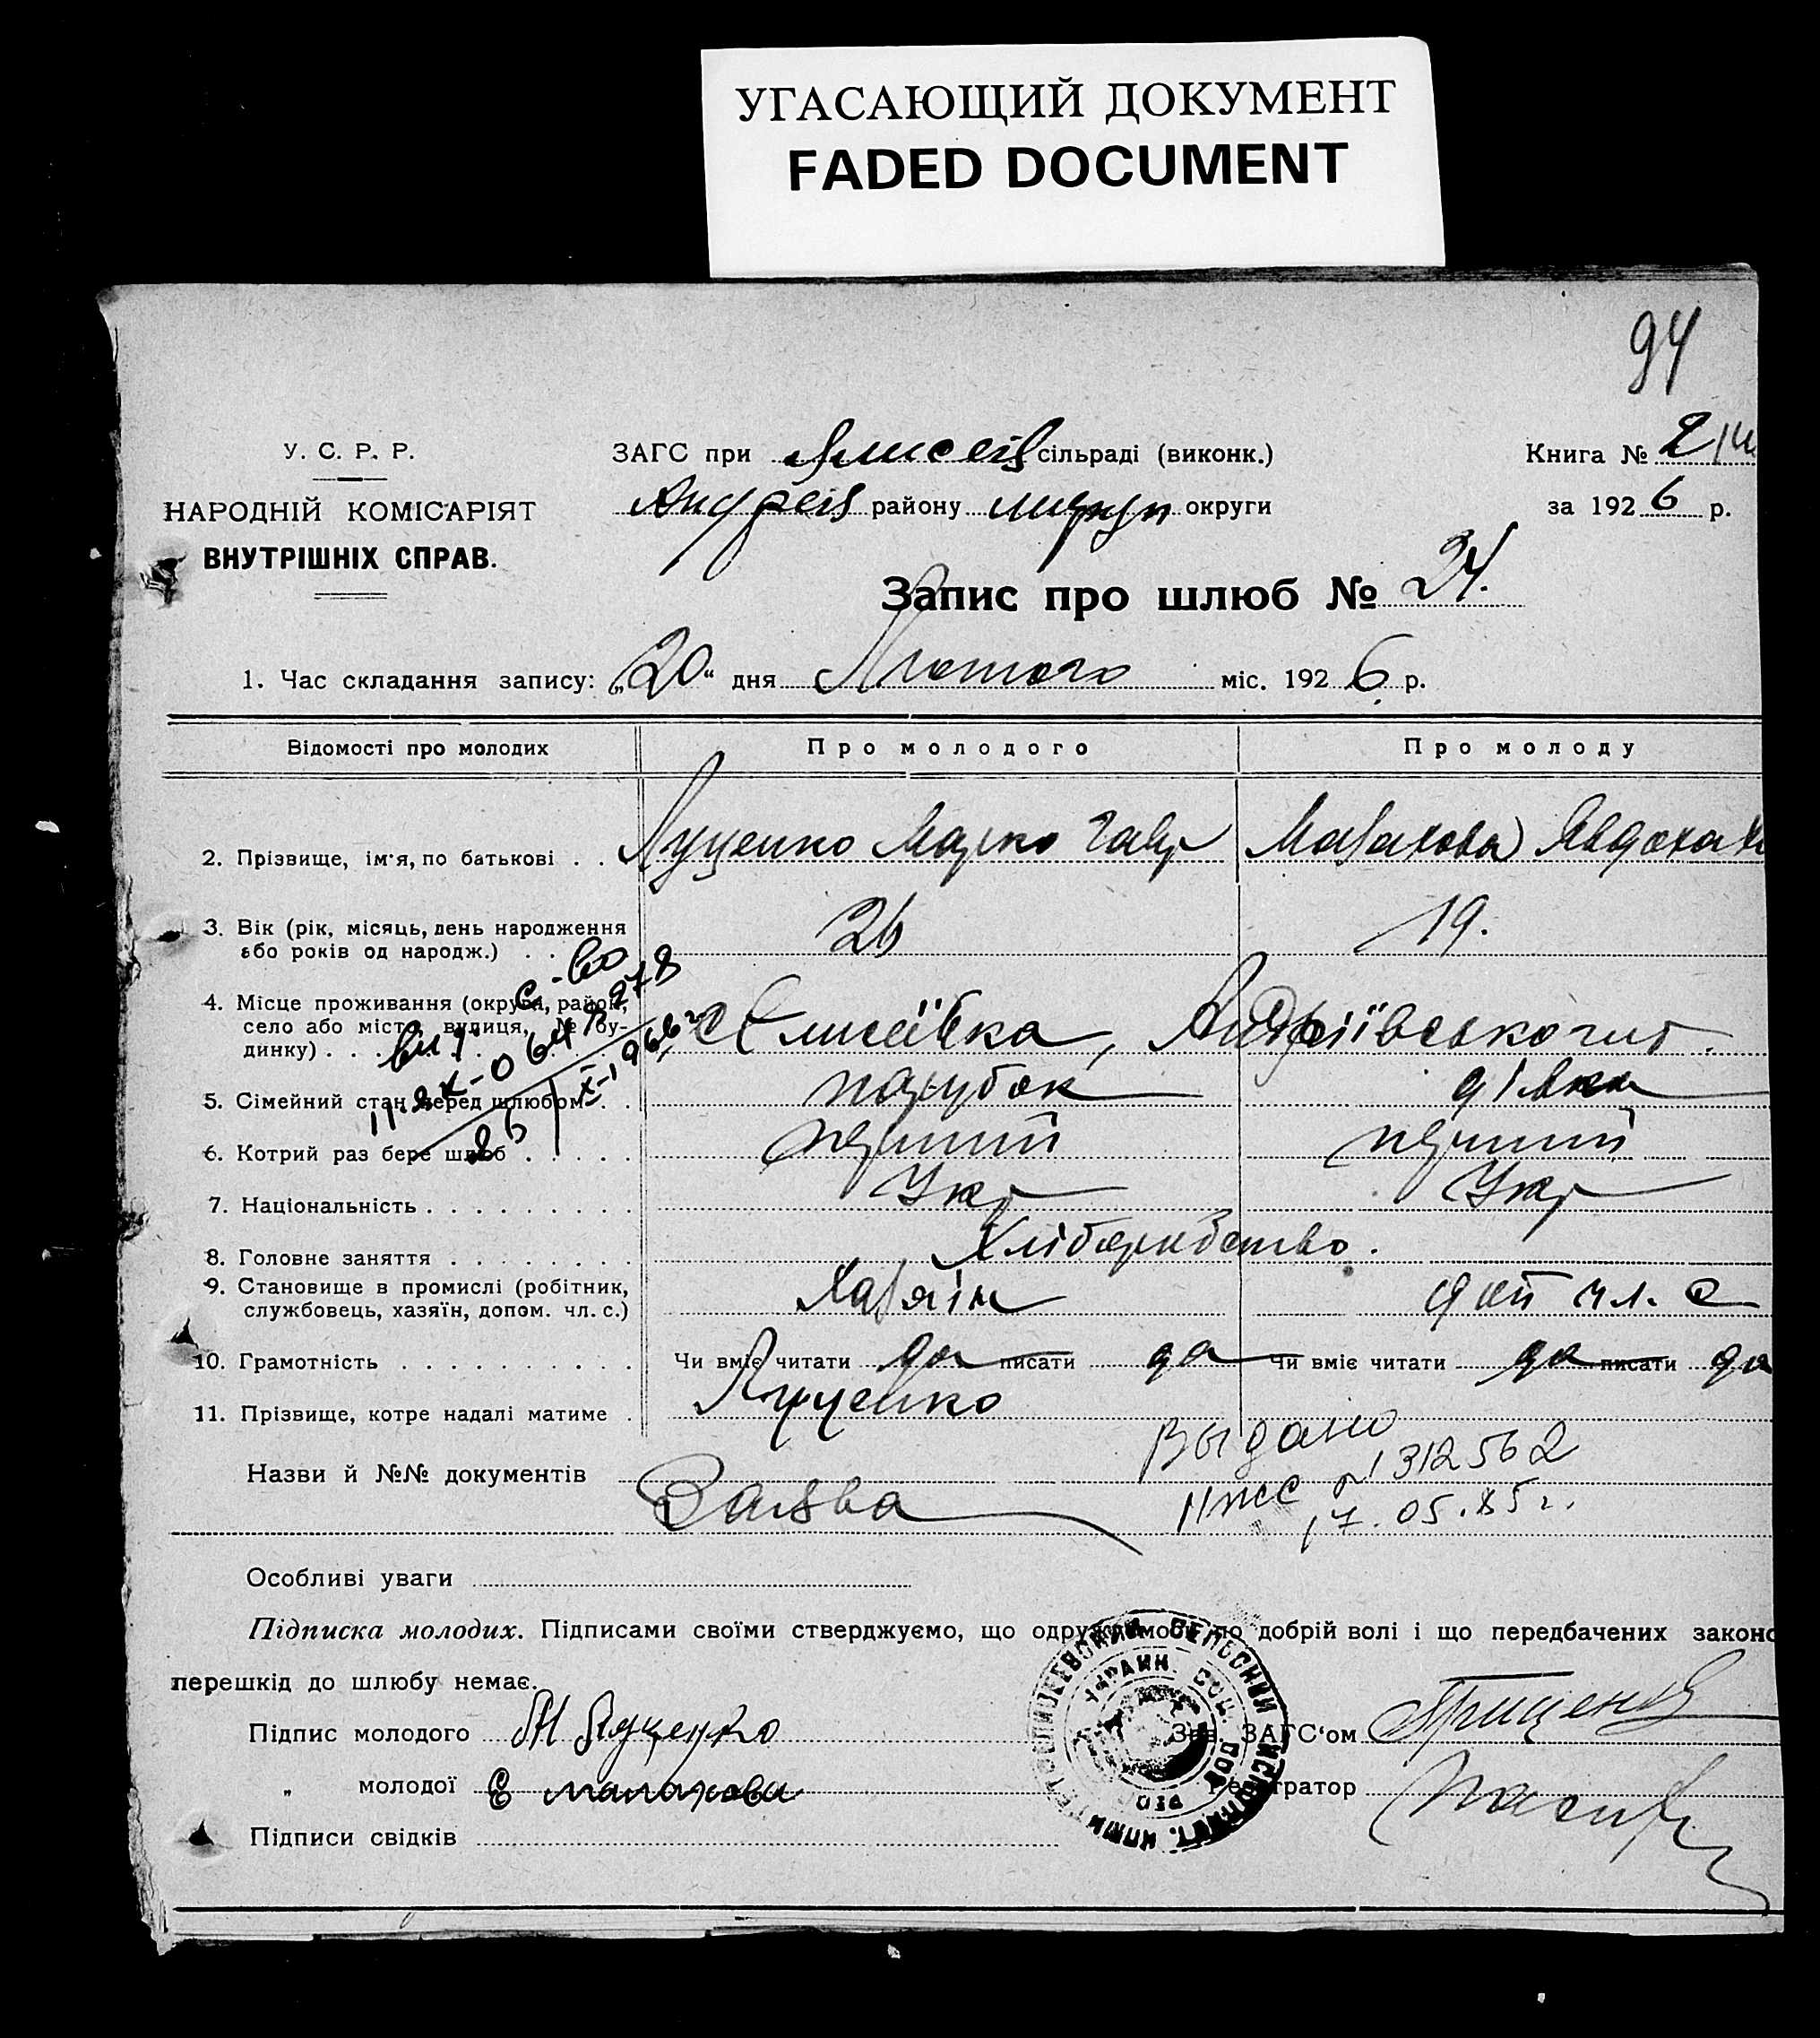 УГАСАЮЩИЙ ДОКУМЕНТ
FADED DOCUMENT
94
У. С. Р. Р.
НАРОДНІЙ КОМІСАРІЯТ
ВНУТРІШНІХ СПРАВ.
ЗАГС при Єлисеїв сільраді (виконк.)
Андреїв району округи
Книга № 2
за 1926 р.
Запис про шлюб № 24.
1. Час складання запису: „20“ дня Лютого міс. 1926 р.
Відомості про молодих Про молодого Про молоду
2. Прізвище, ім'я, по батькові . . Луценко Марко Гавр Малахова Явдоха
3. Вік (рік, місяць, день народження
або років од народж.) . . 26 19.
4. Місце проживання (округа, район,
село або місто, вулиця, № бу-
динку) . . . с Єлисеївка, Андріївського
5. Сімейний стан перед шлюбом . . парубок дівка
6. Котрий раз бере шлюб . . . . . перший перший
7. Національність . . . . . . . . . Укр Укр
8. Головне заняття . . . . . . . . Хліборобство.
9. Становище в промислі (робітник,
службовець, хазяїн, допом. чл. с.) Хазяїн доп чл. с
10. Грамотність . . . . . . . . . . Чи вміє читати да писати да Чи вміє читати да писати да
11. Прізвище, котре надалі матиме . Луценко
Назви й №№ документів
Выдано
№ 312562
17.05.85г.
Особливі уваги
Підписка молодих. Підписами своїми стверджуємо, що одружуємось по добрій волі і що передбачених законо
перешкід до шлюбу немає.
Підпис молодого М Луценко
Зав. ЗАГС‘ом Грищенко
„ молодої Є малахова
Регістратор
Підписи свідків